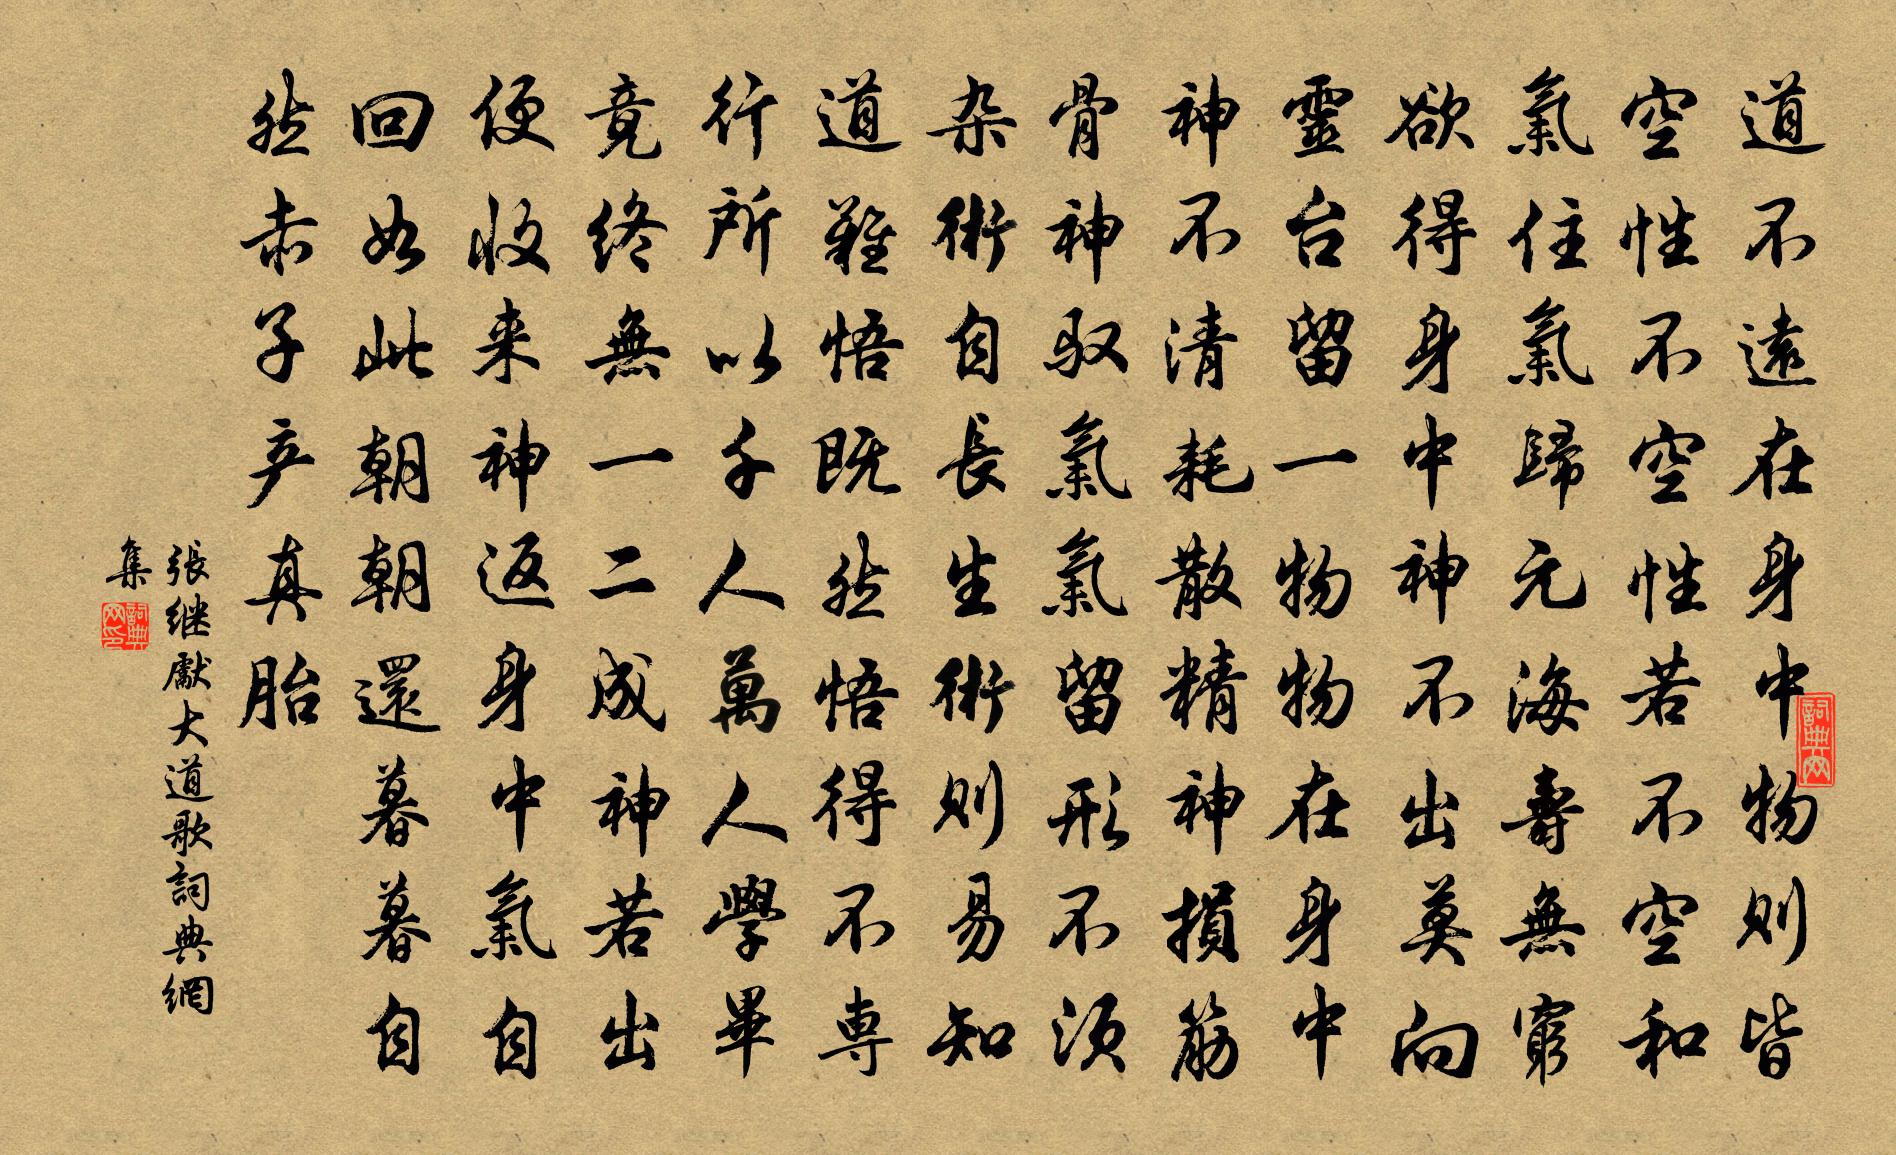 道不遠在身中物則皆
空性不空性若不空和
氣住氣歸元海壽無窮
欲得身中神不出莫向
靈台留一物物在身中
神不清耗散精神損筋
骨神馭氣氣留形不須
杂術自長生術則易知
道難悟既然悟得不專
行所以千人萬人學畢
竟終無一二成神若出
便收来神返身中氣自
回如此朝朝還暮暮自
然赤子产真胎
張继獻大道歌詞典網
集
詞典网
詞典网印